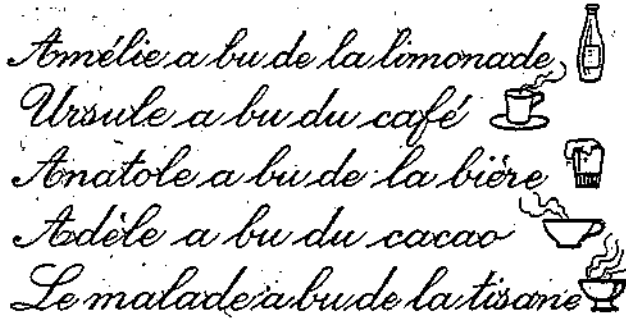 Amélie a bu de la limonade
Ursule a bu du café
Anatole a bu de la bière
Adèle a bu du cacao
Le malade a bu de la tisane